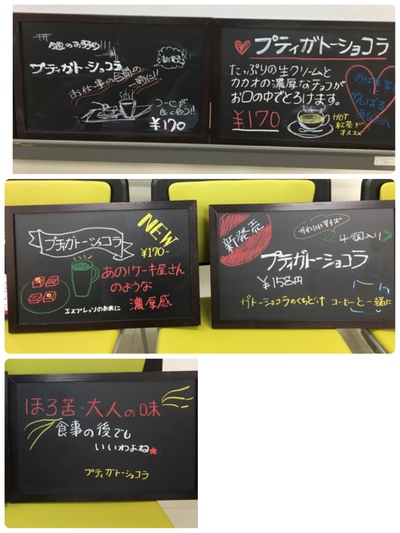 今週のおすすめ!!!
新発売
プティガトーショコラ
お仕事の合間の
一時に!!
コーヒーが
¥170
プティガトーショコラ
たっぷりの生クリームと
カカオの濃厚なチョコが
お口の中でとろけます。
¥170
HOT
紅茶が
オススメ
お仕事
がんばる
あなたへ
プティガトーショコラ
NEW
¥170-
あのケーキ屋さん
のような
濃厚感
エスプレッソのお供に
新発売
かわいいサイズ
4個入り
プティガトーショコラ
¥158円
ガトーショコラのくちどけ コーヒーと一緒に
ほろ苦・大人の味
食事の後でも
いいわよね
プティガトーショコラ